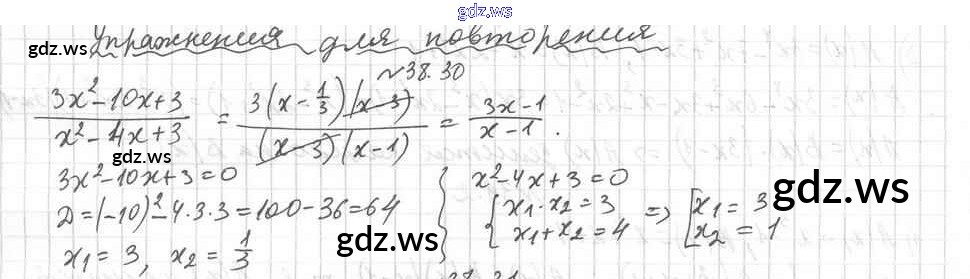 gdz.ws
Упражнения для повторения
gdz.ws
№38.30
(3x²-10x+3)/(x²-4x+3) = (3(x-1/3)(x-3))/((x-3)(x-1)) = (3x-1)/(x-1).
gdz.ws
3x²-10x+3=0
D=(-10)²-4·3·3=100-36=64
x₁=3, x₂=1/3
x²-4x+3=0
{x₁·x₂=3
x₁+x₂=4 => [x₁=3
x₂=1
gdz.ws
gdz.ws